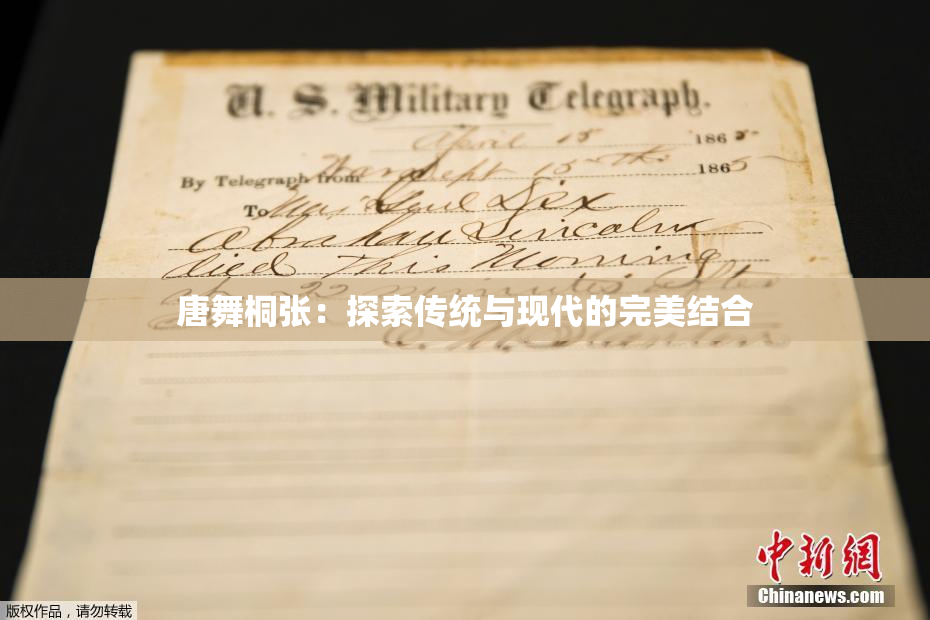 U. S. Military Telegraph.
April 15 1865
By Telegraph from War Dept 15th 1865
To Maj Genl Dix
Abraham Lincoln
died This Morning
at 22 minutes after
唐舞桐张：探索传统与现代的完美结合
中新网
Chinanews.com
版权作品，请勿转载